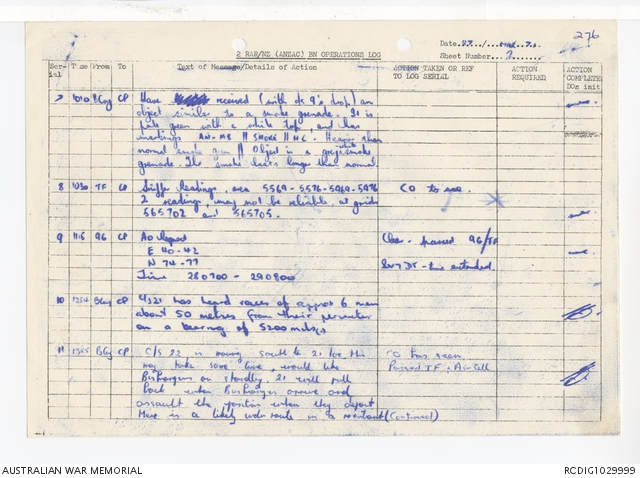 276
2 RAR/NZ (ANZAC) BN OPERATIONS LOG
Date
Sheet Number
Ser-ial Time From To Text of Message/Details of Action ACTION TAKEN OR REF TO LOG SERIAL ACTION REQUIRED ACTION COMPLETE DOs init
7 1010 BCoy CP Have received (with dr 9's drop) an
object similar to a smoke grenade. It is
pale green with a white top, and has
markings AN-M8 || SMOKE || HC. Heavier than
normal smoke gren || Object is a smoke
grenade. The smoke lasts longer than normal
8 1030 TF CP Sniffer readings, area 5569-5576-5969-5976 CO to see.
2 readings, may not be reliable, at grids
565702 and 565705.
9 1116 96 CP AO Report passed 96/TF
E 40-42
N 74-77 extended
Time 280700 - 290800
10 1254 BCoy CP 4/S21 has heard voices of approx 6 men
about 50 metres from their perimeter
on a bearing of 5200 mils
11 1355 BCoy CP C/S 22 is moving south to 21 loc, this CO has seen.
may take some time, would like Passed TF
Bushrangers on standby. 21 will pull
back when Bushranger arrive and
assault the position when they depart
There is a likely route in a (Continued)
AUSTRALIAN WAR MEMORIAL
RCDIG1029999